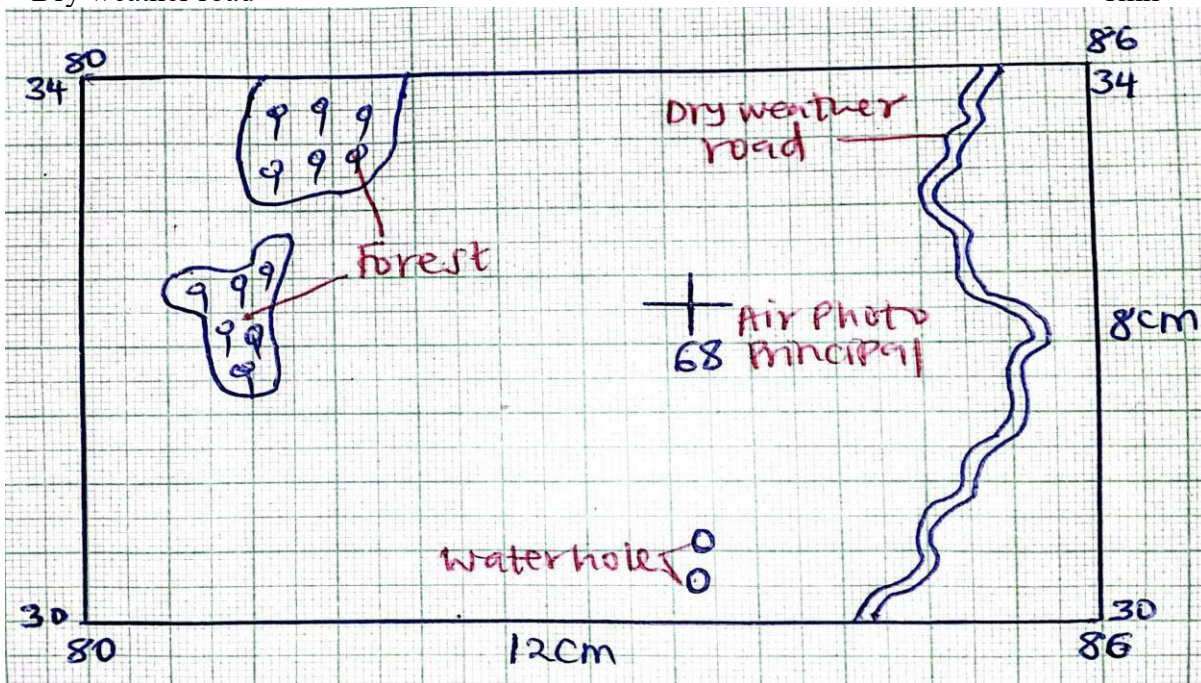 80
86
34
34
Dry weather
road
Forest
Air Photo
68 Principal
8cm
Waterholes
30
30
80
12cm
86